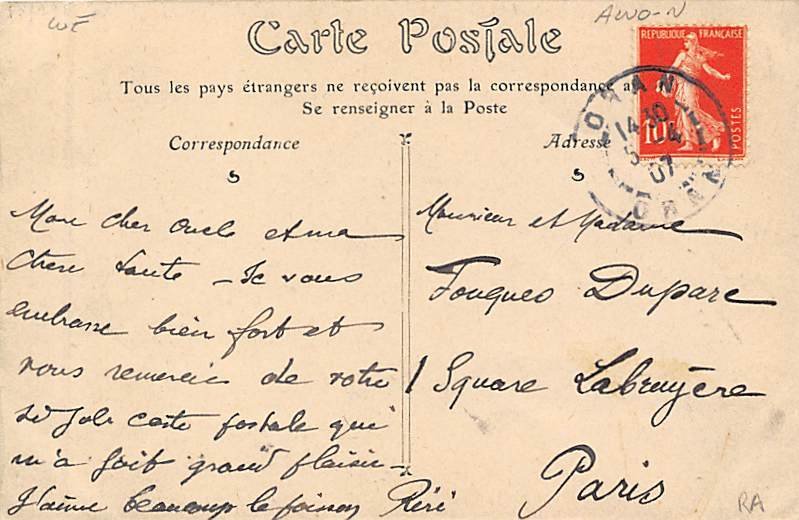 Carte Postale
Tous les pays étrangers ne reçoivent pas la correspondance au
Se renseigner à la Poste
Correspondance
Mon cher oncle et ma
chere tante – Je vous
embrasse bien fort et
vous remercie de votre
si jolie carte postale qui
m'a fait grand plaisir –
J'aime beaucoup le poisson Réri
Adresse
REPUBLIQUE FRANÇAISE
10c
POSTES
ORAN
14 30
5 -4
07
ORAN
Monsieur et Madame
Fouques Duparc
1 Square Labruyère
Paris
RA